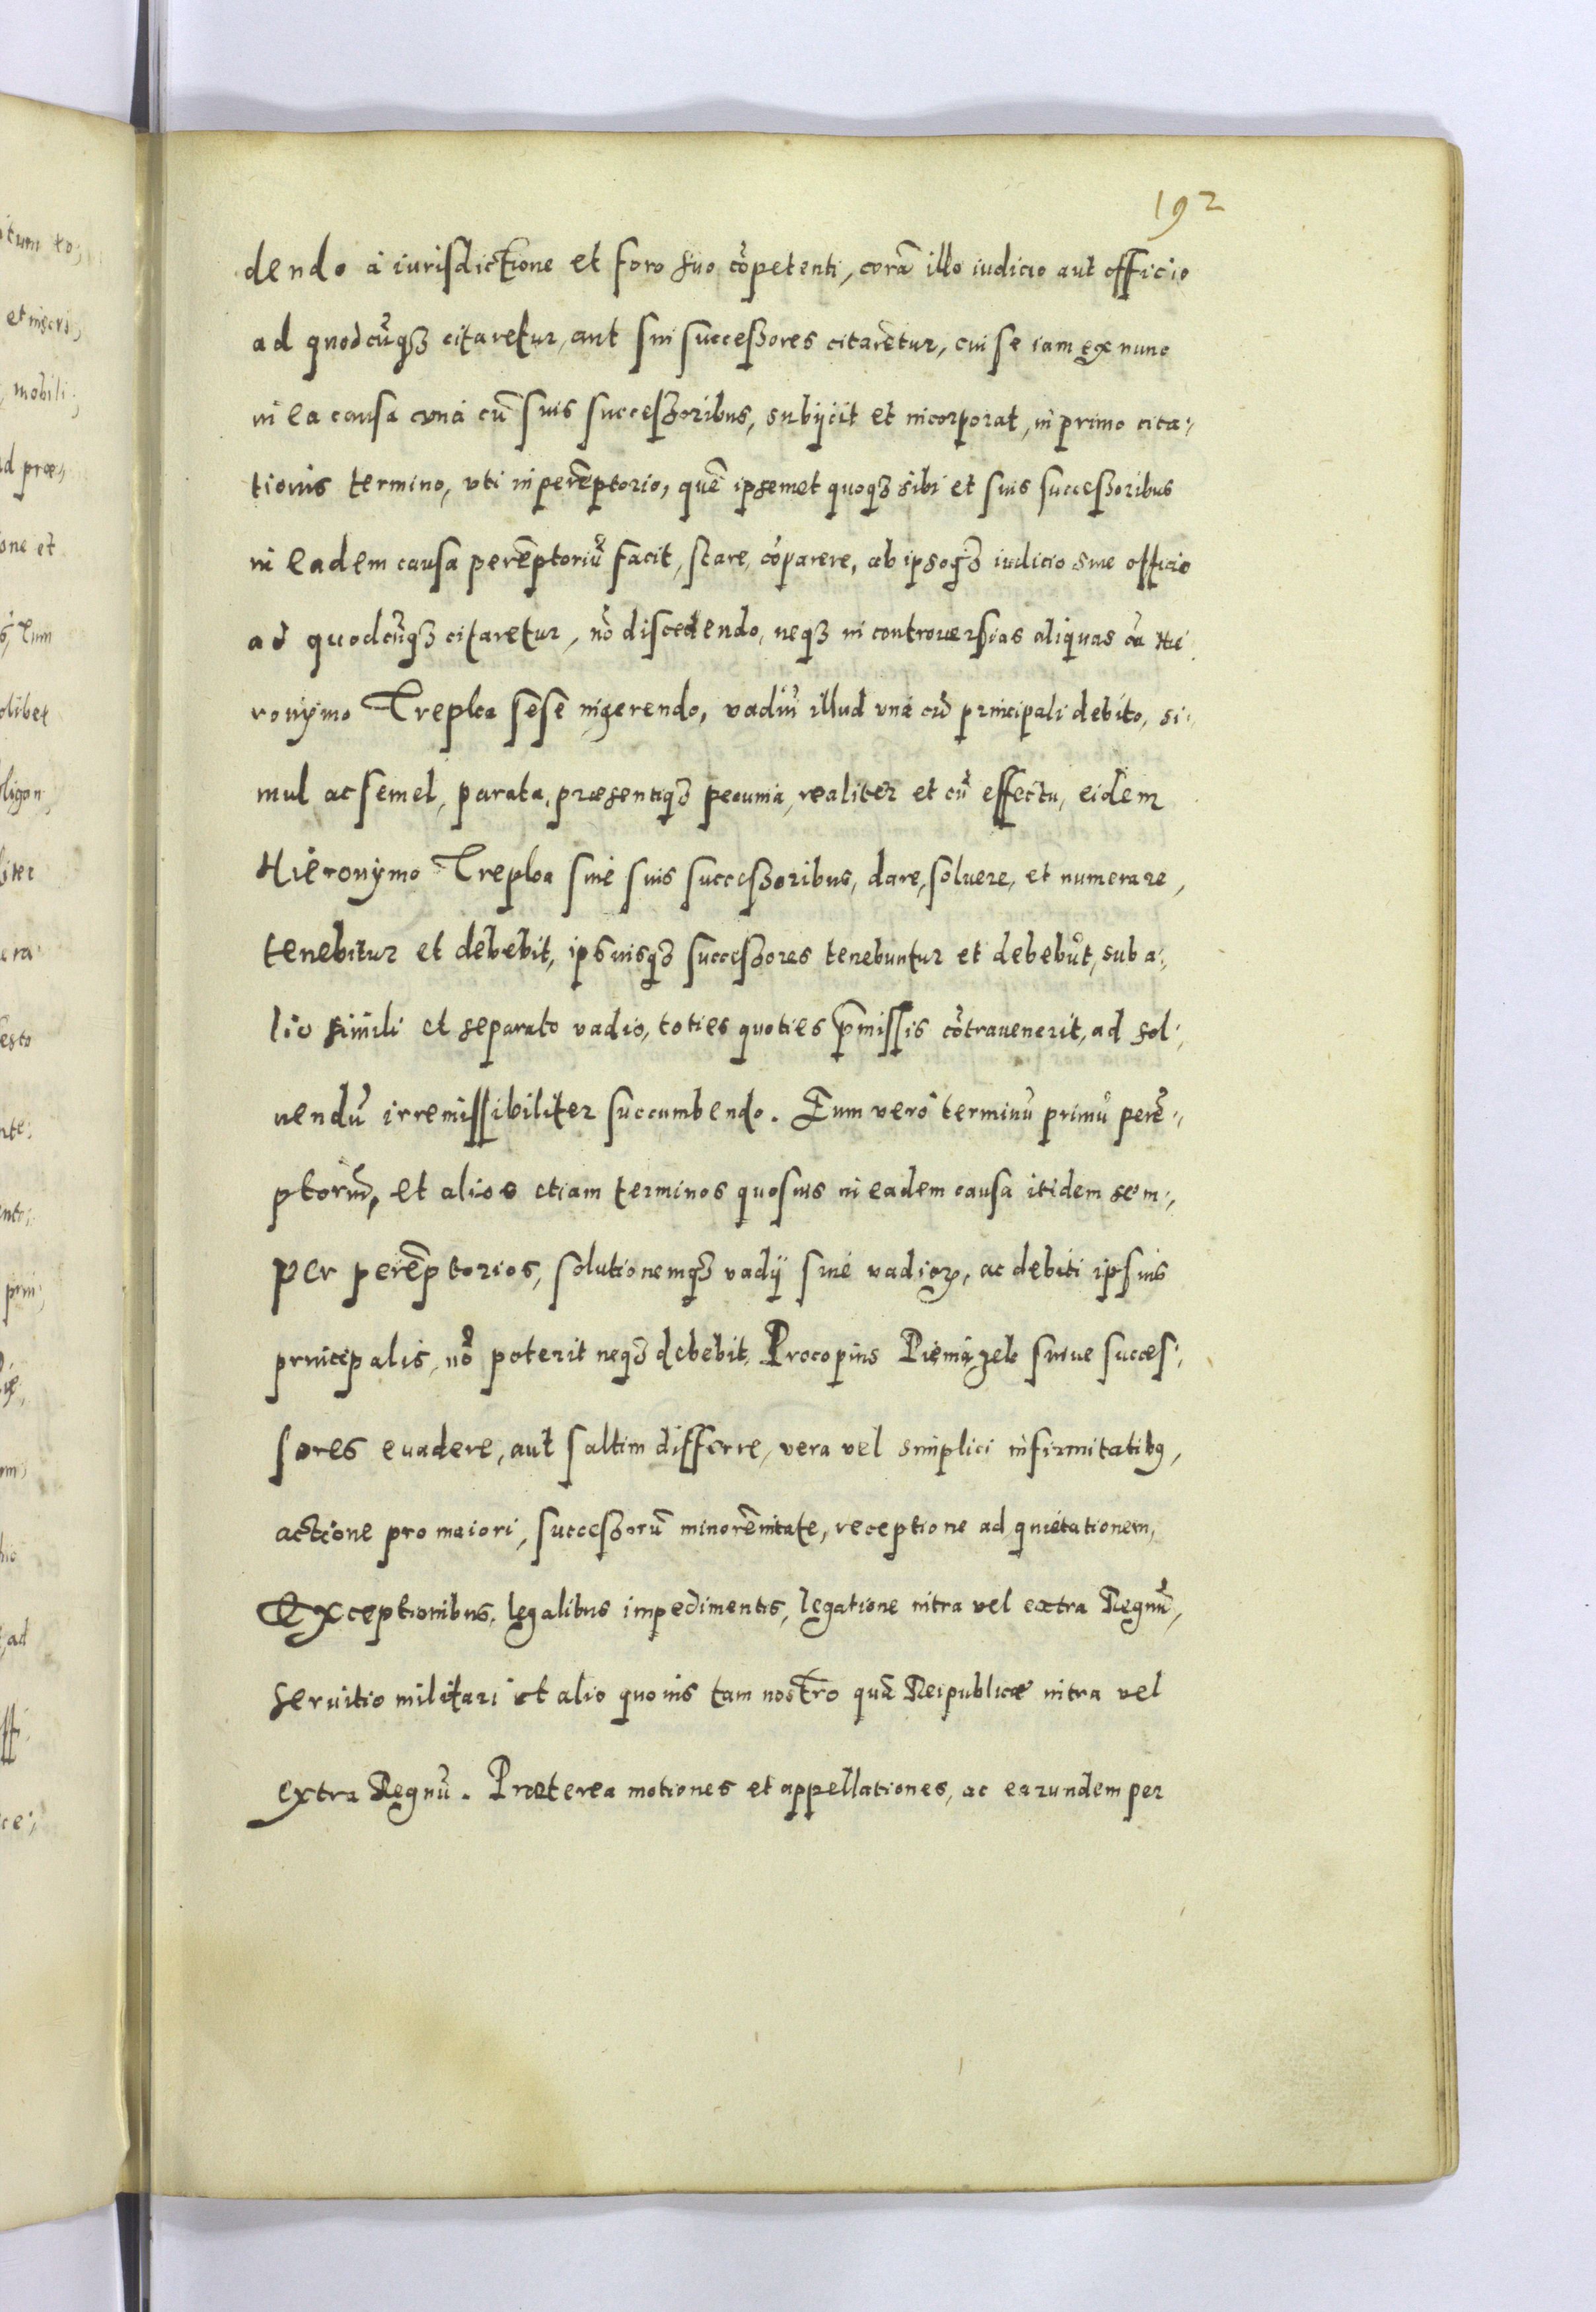 192
dendo à iurisdictione et foro suo cōpetenti, corā illo iudicio aut officio
ad quodcūqꝫ citaretur, aut sui successores citarētur, cui se iam ex nunc
in ea causa vnà cū suis successoribus, subijcit et incorporat, in primo cita-
tionis termino, vti in perēptorio, quē ipsemet quoqꝫ sibi et suis successoribus
in eadem causa perēptoriū facit, stare, cōparere, ab ipsoqꝫ iudicio siue officio
ad quodcūqꝫ citaretur, nō discedendo, neqꝫ in controuersias aliquas cū Hie
ronymo Trepka sese ingerendo, vadiū illud vnà cū principali debito, si-
mul ac semel, parata, præsentiqꝫ pecunia, realiter et cū effectu, eidem
Hieronymo Trepka siue suis successoribus, dare, soluere, et numerare,
tenebitur et debebit, ipsiusqꝫ successores tenebuntur et debebūt, sub a-
lio simili et separato vadio, toties quoties p̄missis cōtrauenerit, ad sol-
uendū irremissibiliter succumbendo. Eum verò terminū primū perē-
ptoriū, et alios etiam terminos quosuis in eadem causa itidem sem-
per perēptorios, solutionemqꝫ vadij siue vadioꝝ, ac debiti ipsius
principalis, nō poterit neqꝫ debebit, Procopius Pieniązek suiue succes-
sores euadere, aut saltim differre, vera vel simplici infirmitatibꝰ,
actione pro maiori, successorū minorēnitate, receptione ad quietationem,
Exceptionibus, legalibus impedimentis, legatione intra vel extra Regnū,
seruitio militari et alio quouis tam nostro quā Reipublicæ intra vel
extra Regnū. Præterea motiones et appellationes, ac earundem per